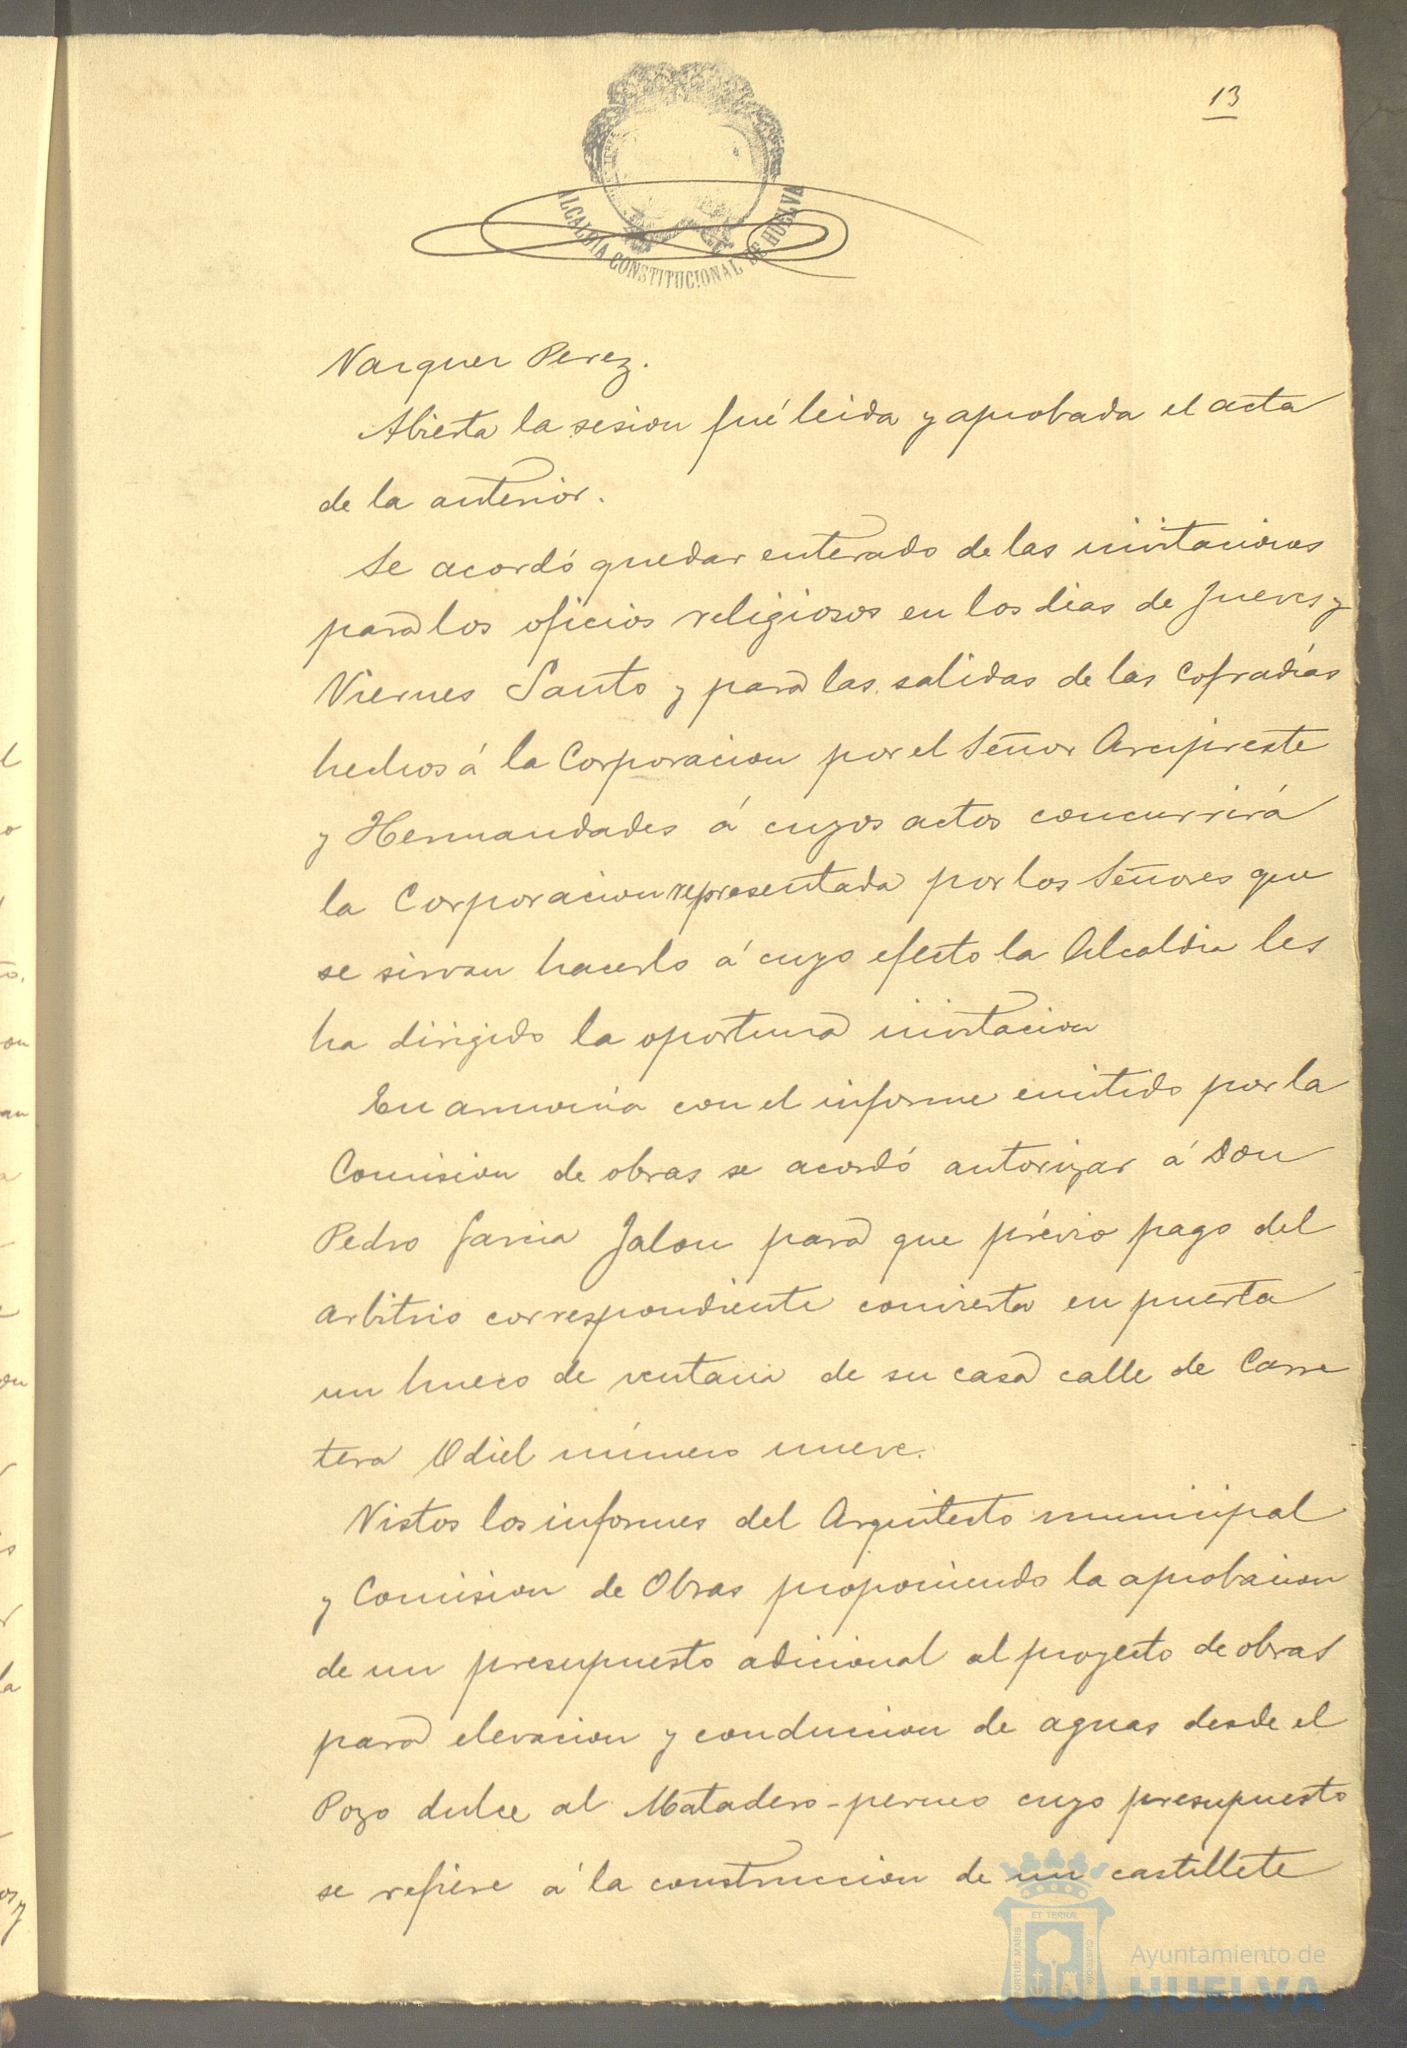 13
ALCALDIA CONSTITUCIONAL DE HUELVA
Vazquez Perez.
Abierta la sesion fué leida y aprobada el acta
de la anterior.
Se acordó quedar enterado de las invitaciones
para los oficios religiosos en los dias de Jueves y
Viernes Santo y para las salidas de las Cofradías
hechos á la Corporacion por el Señor Arcipreste
y Hermandades á cuyos actos concurrirá
la Corporacion representada por los Señores que
se sirvan hacerlo á cuyo efecto la Alcaldia les
ha dirigido la oportuna invitacion
En armonia con el informe emitido por la
Comision de obras se acordó autorizar á Don
Pedro Garcia Jalon para que prévio pago del
arbitrio correspondiente convierta en puerta
un hueco de ventana de su casa calle de Carre
tera Odiel número nueve.
Vistos los informes del Arquitecto municipal
y Comision de Obras proponiendo la aprobacion
de un presupuesto adicional al proyecto de obras
para elevacion y conduccion de aguas desde el
Pozo dulce al Matadero-perneo cuyo presupuesto
se refiere á la construccion de un castillete
PORTUS MARIS
ET TERRAE
CUSTODIA
Ayuntamiento de
HUELVA